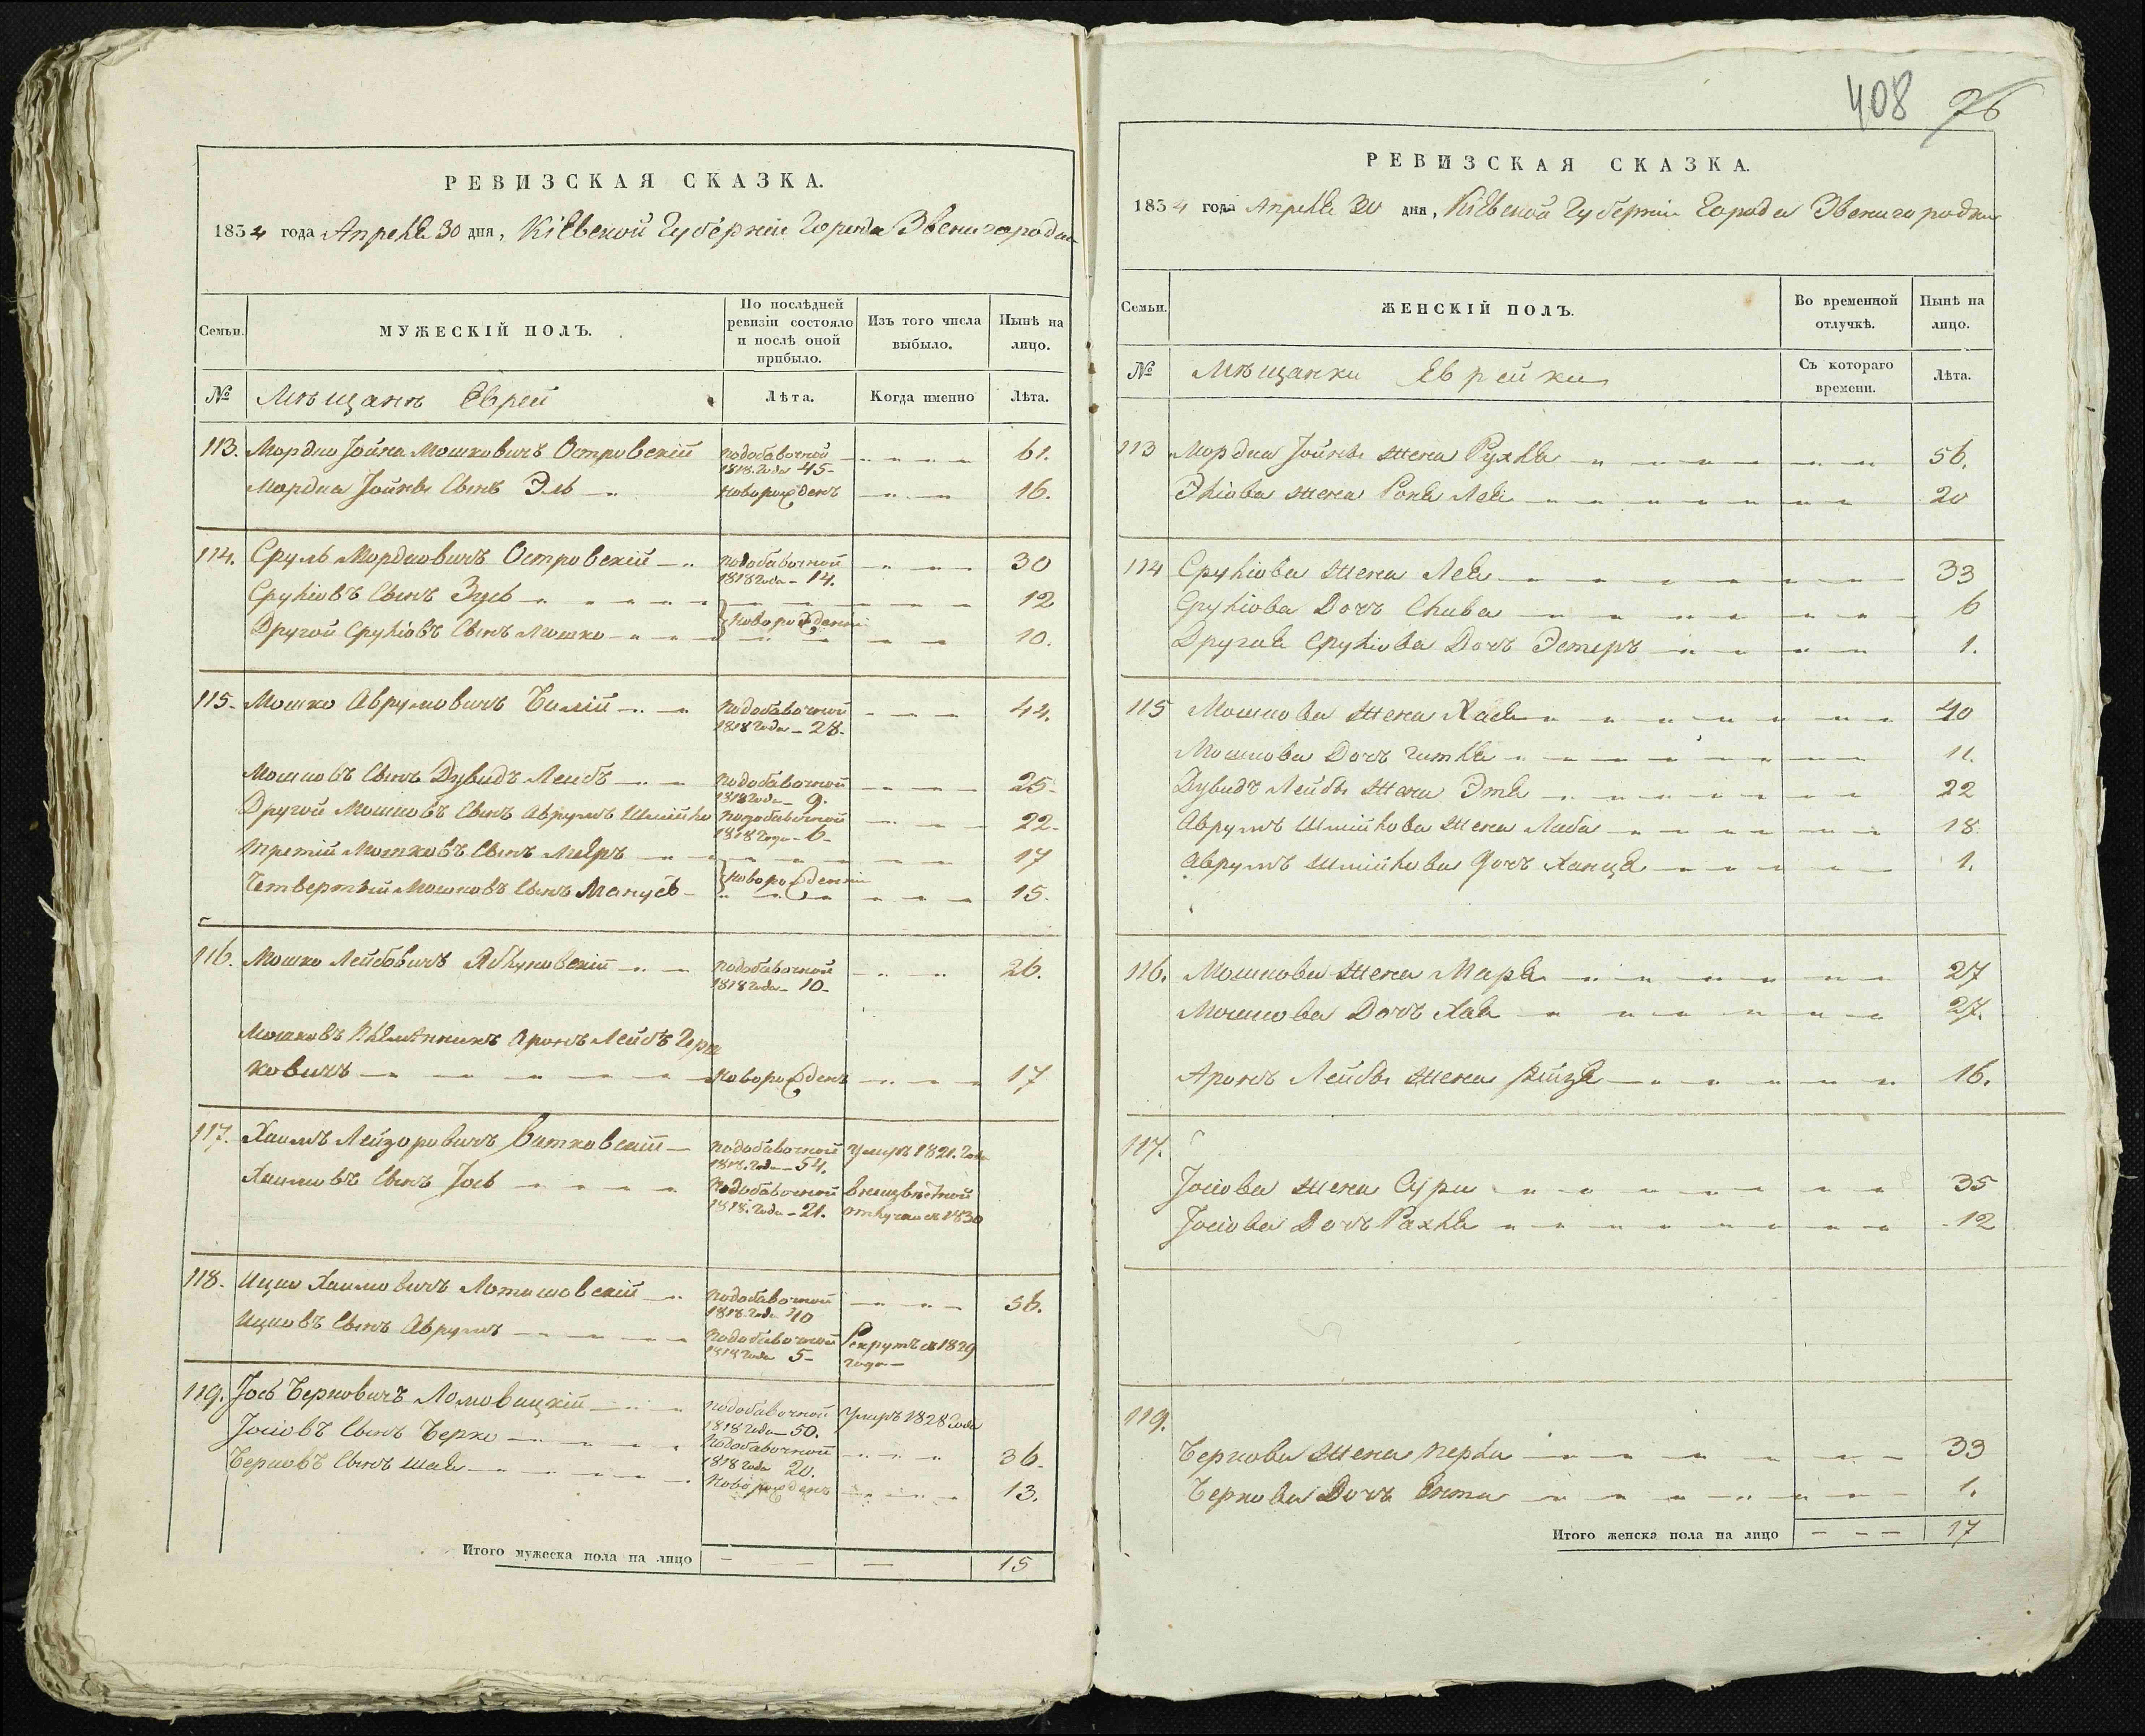 РЕВИЗСКАЯ СКАЗКА.
1834 года Апреля 30 дня, Кіевской Губерніи Города Звенигородки
Семьи. МУЖЕСКІЙ ПОЛЪ. По послѣдней ревизіи состояло и послѣ оной прибыло. Изъ того числа выбыло. Нынѣ на лицо.
№ Мѣщанъ Еврей Лѣта. Когда именно Лѣта.
113. Мордко Іойна Мошковичъ Островскій подобавочной 1818. года 45 - 61.
Мордка Іойны Сынъ Эль новорожденъ 16.
114. Сруль Мордковичъ Островскій подобавочной 1818 года - 14. 30
Сруліовъ Сынъ Зусь 12
новорожденнi
Другой Сруліовъ Сынъ Мошко 10.
115. Мошко Аврумовичъ Билій подобавочной 1818 года - 28. 44.
Мошковъ Сынъ Дувидъ Лейбъ подобавочной 1818 года 9. 25.
Другой Мошковъ Сынъ Аврумъ Шмійло подобавочной 1818 года - 6 - 22.
третій Мошковъ Сынъ Меяръ 17
новорожденнiи
Четвертый Мошковъ Сынъ Манусь 15.
116. Мошко Лейбовичъ Яблуновскій подобавочной 1818 года - 10 - 26.
Мошковъ Племянникъ Аронъ Лейбъ Гер
ковичъ новорожденъ 17
117. Хаимъ Лейзоровичъ Витковскій подобавочной 1818. года - 54. Умеръ 1821. года
Хаимовъ Сынъ Іось подобавочной 1818. года - 21. в неизвѣстной отлучки съ 1830
118. Ицко Хаимовичъ Лоташовскій подобавочной 1818. года 40 56.
Ицковъ Сынъ Аврумъ подобавочной 1818 года 5 - Рекрутъ съ 1829 года -
119. Іось Берковичъ Ломовицкій подобавочной 1818 года - 50. Умеръ 1828 года
Іосіовъ Сынъ Берко подобавочной 1818 года 20. 36.
Берковъ Сынъ Шая новорожденъ 13.
Итого мужеска пола на лицо 15
408 76
РЕВИЗСКАЯ СКАЗКА.
1834 года Апреля 30 дня, Кіевской Губерніи Города Звенигородки
Семьи. ЖЕНСКІЙ ПОЛЪ. Во временной отлучкѣ. Нынѣ на лицо.
№ Мѣщанки Еврейки Съ котораго времени. Лѣта.
113 Мордка Іойны жена Рухля 56.
Эліова жена Рокля Лея 20
114 Сруліова жена Лея 33
Сруліова Дочъ Слива 6
Другая Сруліова Дочъ Эстеръ 1.
115 Мошкова жена Хая 40
Мошкова Дочъ Гитля 11.
Дувидъ Лейбы жена Этя 22
Аврумъ Шмійлова жена Либа 18
Аврумъ Шмійлова Дочъ Ханця 1.
116. Мошкова жена Маря 27
Мошкова Дочъ Хая 27.
Аронъ Лейбы жена Рійзя 16.
117.
Іосіова жена Сура 35
Іосіова Дочъ Рахля 12
119.
Беркова жена Перла 33
Беркова Дочъ Ента 1.
Итого женска пола на лицо 17